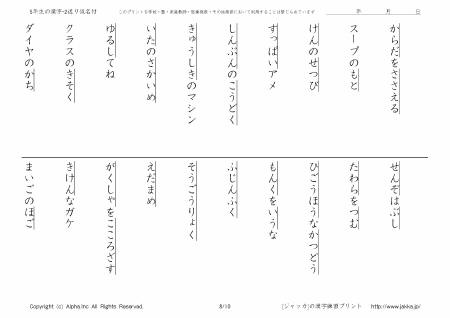 5年生の漢字-2送り仮名付
このプリントを学校・塾・家庭教師・医療施設・その他施設において利用することは禁じられています
年 月 日
からだをささえる
スープのもと
けんのせつび
すっぱいアメ
しんぶんのこうどく
きゅうしきのマシン
いたのさかいめ
ゆるしてね
クラスのきそく
ダイヤのかち
せんぞはぶし
たわらをつむ
ひごうほうなかつどう
もんくをいうな
ふじんふく
そうごうりょく
えだまめ
がくしゃをこころざす
きけんなガケ
まいごのほご
Copyright (c) Alpha.Inc All Rights Reserved.
8/10
[ジャッカ]の漢字練習プリント http://www.jakka.jp/